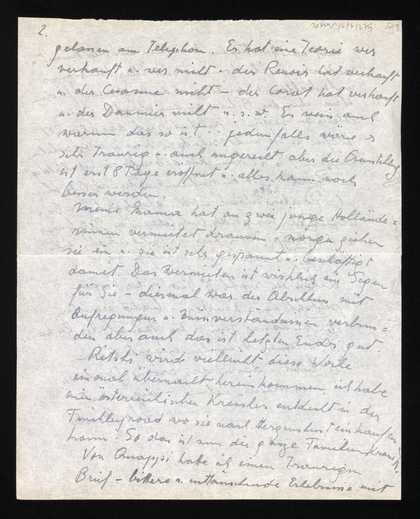 2.
gelassen am Telephon. Er hat eine Teorie wer
verkauft u. wer nicht - der Renoir hat verkauft
u. der Cezanne nicht - der Corot hat verkauft
u. der Daumier nicht u. s. w. Er weiss auch
warum das so ist. jedenfalls wäre es
sehr traurig u. auch ungerecht aber die
ist erst 8 Tage eröffnet u. alles kann noch
besser werden.
Meine Mama hat an zwei junge Hollände=
rinnen vermietet draussen - morgen gehen
sie ein u. sie ist sehr gespannt u. beschäftigt
damit. Das Vermieten ist wirklich ein Segen
für Sie - diesmal war der Abschluss mit
Aufregungen u. Missverständnissen verbun=
den aber auch das ist letzten Endes gut
wird vielleicht diese Woche
einmal übernacht hereinkommen ich habe
einen österreichischen entdeckt in der
Finchleyroad wo sie nach Herzenslust einkaufen
kann. So das ist nun der ganze
Von habe ich einen traurigen
Brief - bittere u. enttäuschende Erlebnisse mit